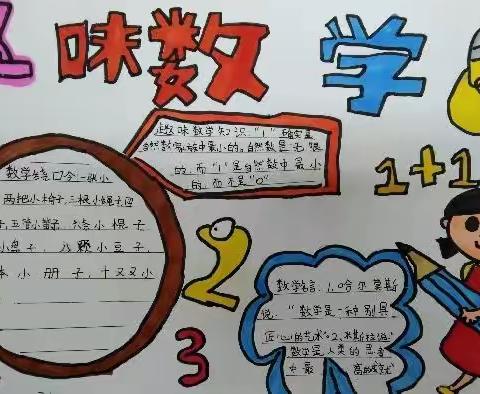 趣味数学
趣味数学知识："1"确实是
自然数家族中最小的。自然数是无限
的,而"1"是自然数中最小
的,而不是"0"
1+1
数学绕口令一张小
两把小椅子,三根小绳子,四
子,五管小笛子,六条小棍子
小盘子,八颗小豆子,
本小册子,十又又小
2
3
数学名言:1.哈尔莫斯
说:"数学是一种别具
匠心的艺术"2.米斯拉说:"
数学是人类的思考
中最高的成就"